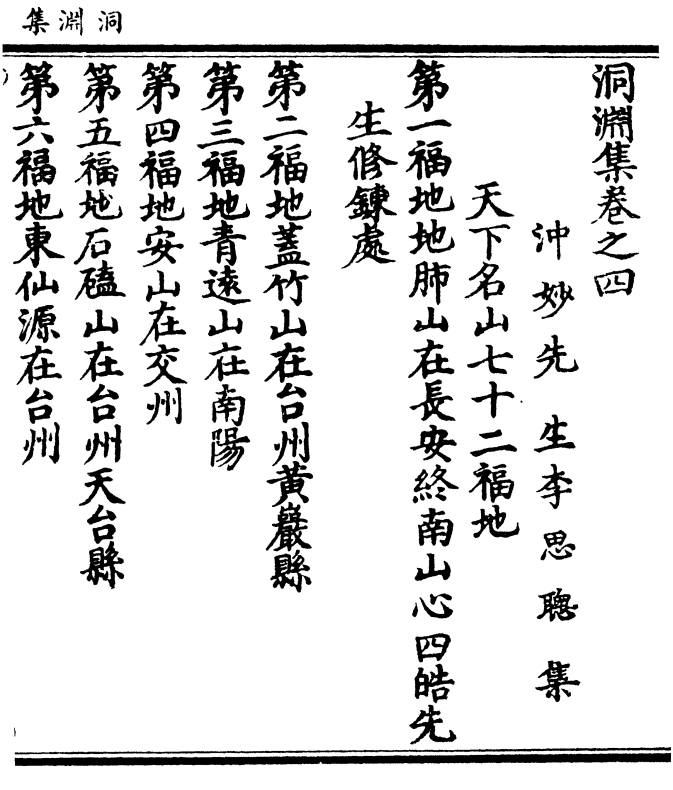 洞淵集
洞淵集卷之四
沖妙先生李思聰集
天下名山七十二福地
第一福地地肺山在長安終南山心四皓先
生修鍊處
第二福地蓋竹山在台州黃巖縣
第三福地青遠山在南陽
第四福地安山在交州
第五福地石磕山在台州天台縣
第六福地東仙源在台州